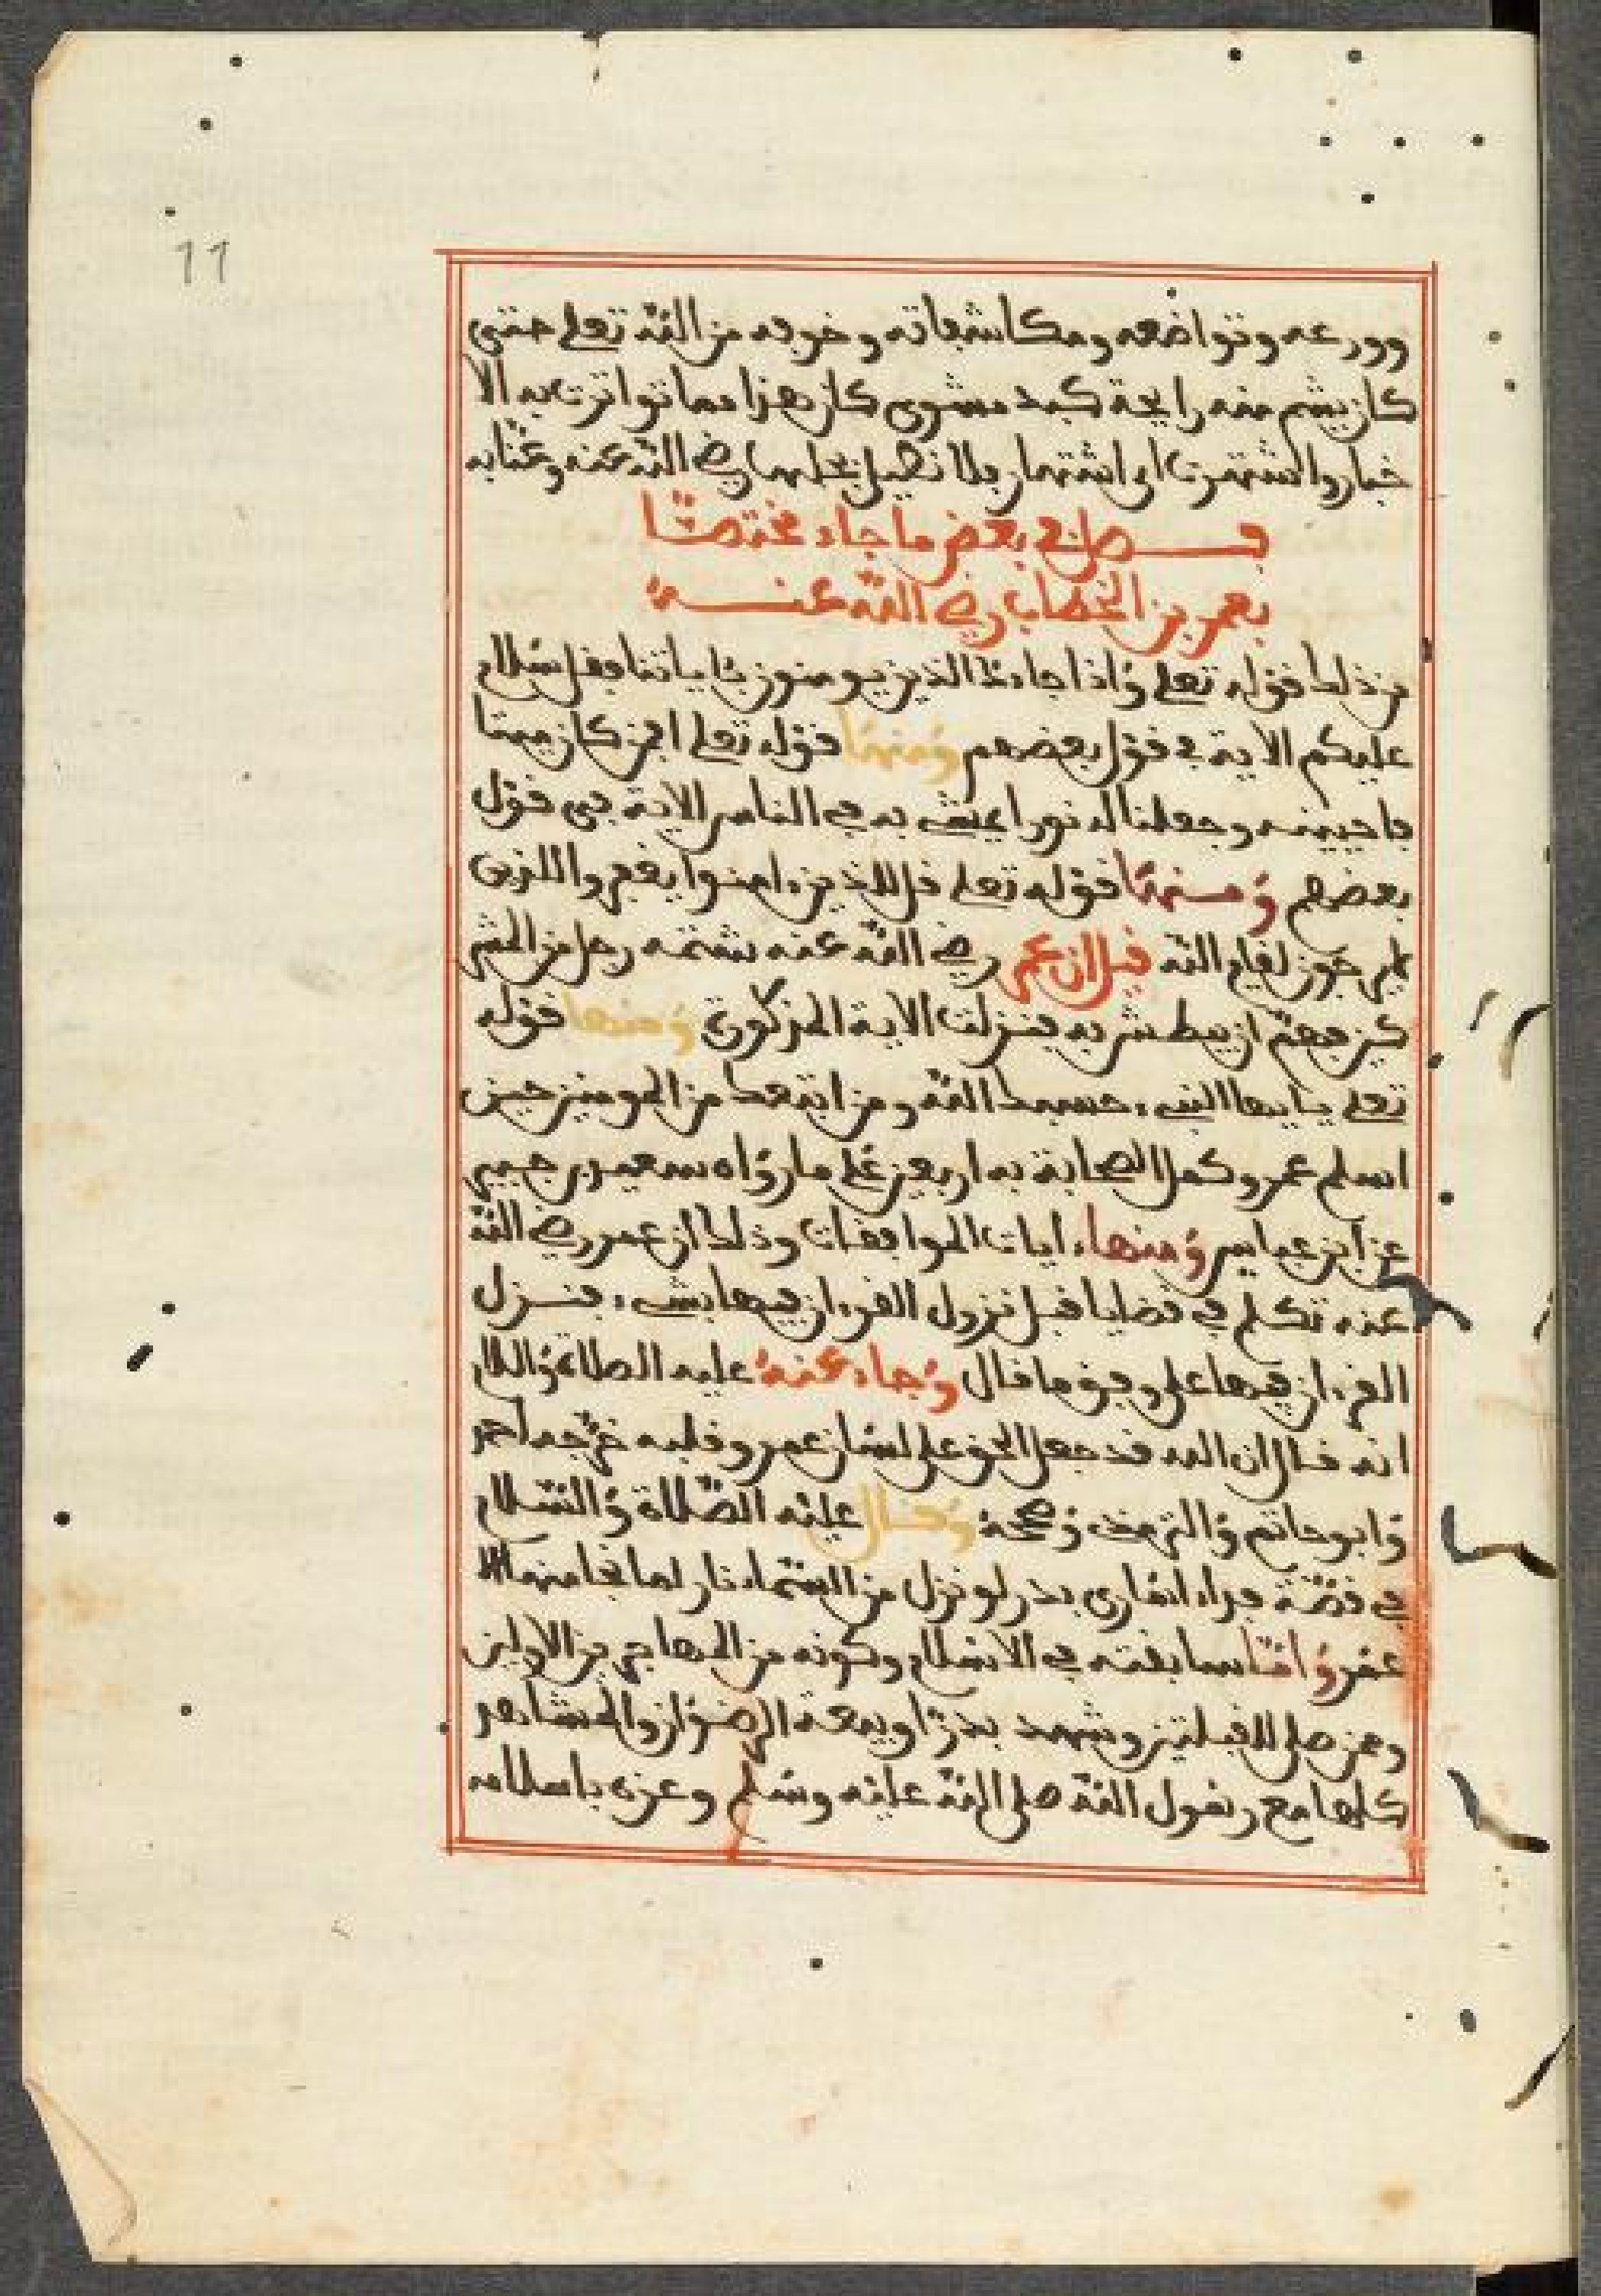 11
وورعه وتواضعه ومكاشفاته وخوفه من الله تعلى حتى
كان يشم منه رايحة كبد مشوى كان هذا مما تواترت به الا
خبار واشتهرت اى اشتهار فلا نطيل بجلبها رضي الله عنه وعنا به
فصل في بعض ما جاء مختصا
بعمر بن الخطاب رضي الله عنه
من ذلك قوله تعلى وإذا جاءك الذين يومنون بئاياتنا فقل سلام
عليكم الاية في قول بعضهم ومنها قوله تعلى افمن كان ميتا
فاحييناه وجعلنا له نورا يمشي به في الناس الاية في قول
بعضهم ومنها قوله تعلى قل للذين ءامنوا يغفروا للذين
لا يرجون لقاء الله قيل ان عمر رضي الله عنه شتمه رجل من المشر
كين فهم ان يبطش به فنزلت الاية المذكورة ومنها قوله
تعلى يايها النبيء حسبك الله ومن اتبعك من المومنين حين
اسلم عمر وكمل الصحابة به اربعين على ما رواه سعيد بن جبير
عن ابن عباس ومنها ءايات الموافقات وذلك ان عمر رضي الله
عنه تكلم في قضايا قبل نزول القرءان فيها بشيء فنزل
القرءان فيها على وفق ما قال وجاء عنه عليه الصلاة والسلام
انه قال ان الله قد جعل الحق على لسان عمر وقلبه خرجه احمد
وابو حاتم والترمذي وصححه وقال عليه الصلاة والسلام
في قصة فداء اسارى بدر لو نزل من السماء نار لما نجا منها الا
عمر واما سابقته في الاسلام وكونه من المهاجرين الاولين
وممن صلى للقبلتين وشهد بدرا وبيعة الرضوان والمشاهد
كلها مع رسول الله صلى الله عليه وسلم وعزى باسلامه